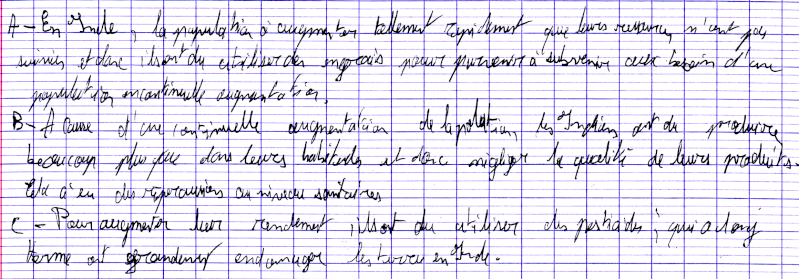 A - En Inde, la population à augmenter tellement rapidement que leurs ressources n'ont pas
suivies et donc ils ont du utiliser des engrais pour parvenir à subvenir aux besoin d'une
population en continuelle augmentation.
B - A cause d'une continuelle augmentation de la polation, les Indiens ont du produire
beaucoup plus que dans leurs habitudes et donc négliger la qualité de leurs produits.
Cela à eu des répercussions au niveau sanitaires
C - Pour augmenter leur rendement, ils ont du utiliser des pesticides, qui a long
terme ont grandement endommager les terres en Inde.